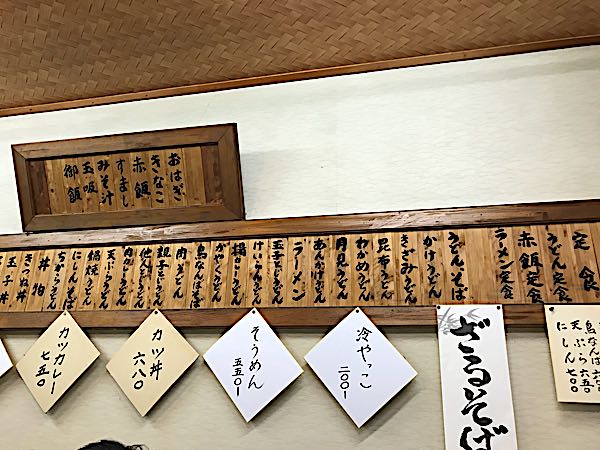 おはぎ
きなこ
赤飯
すまし
みそ汁
玉吸
御飯
定食
うどん定食
赤飯定食
ラーメン定食
うどん、そば
かけうどん
きざみうどん
昆布うどん
わかめうどん
月見うどん
あんかけうどん
ラーメン
玉子とじうどん
けいらんうどん
揚げうどん
かやくうどん
鳥なんばそば
肉うどん
親子とじうどん
他人とじうどん
肉とじうどん
天ぷらうどん
鍋焼うどん
にしんそば
ちからうどん
丼物
きつね丼
玉子丼
鳥なんば
天ぷら 六五〇
にしん 七〇〇
ざるそば
冷やっこ
二〇〇
そうめん
五五〇
カツ丼
六八〇
カツカレー
七五〇